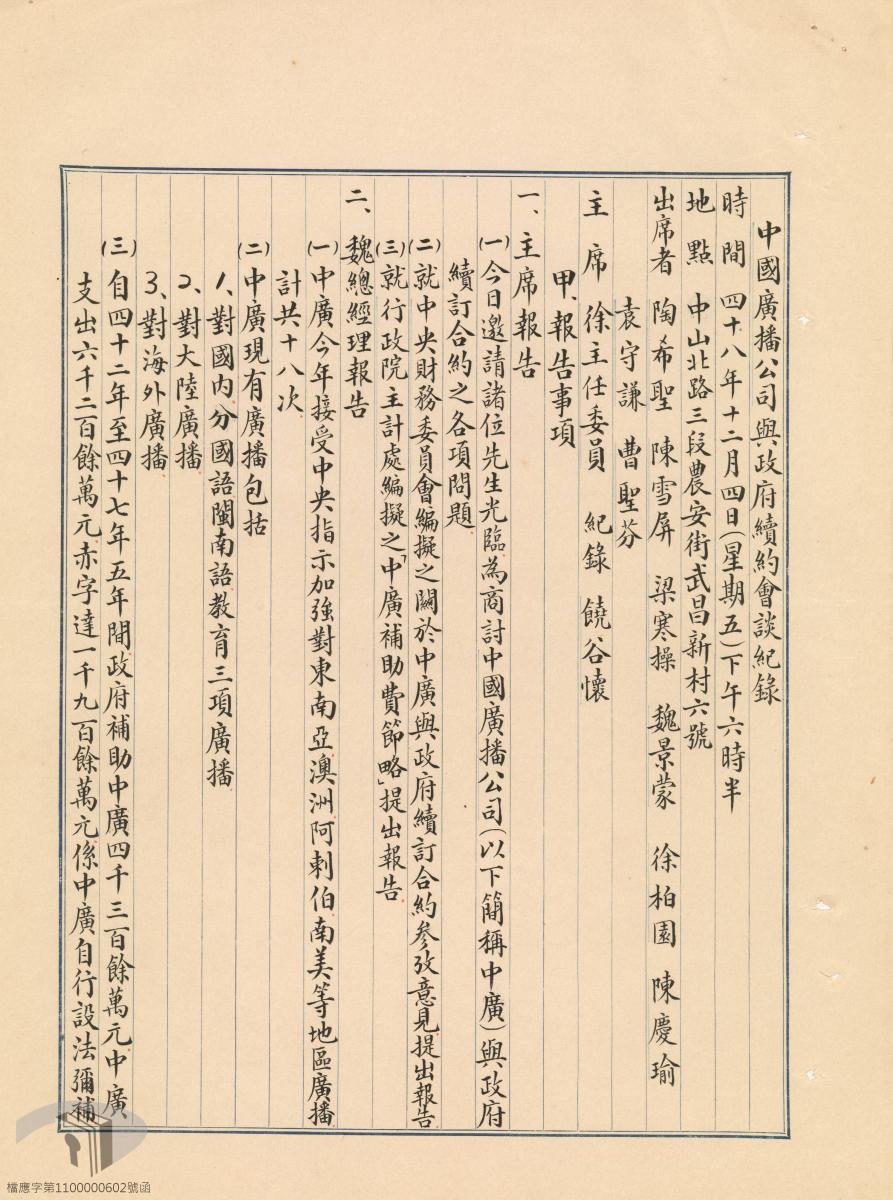 中國廣播公司與政府續約會談紀錄
時間 四十八年十二月四日(星期五)下午六時半
地點 中山北路三段農安街武昌新村六號
出席者 陶希聖 陳雪屏 梁寒操 魏景蒙 徐柏園 陳慶瑜
袁守謙 曹聖芬
主席 徐主任委員 紀錄 饒谷懷
甲、報告事項
一、主席報告
(一)今日邀請諸位先生光臨為商討中國廣播公司(以下簡稱中廣)與政府
續訂合約之各項問題
(二)就中央財務委員會編擬之關於中廣與政府續訂合約參攷意見提出報告
(三)就行政院主計處編擬之「中廣補助費節略」提出報告
二、魏總經理報告
(一)中廣今年接受中央指示加強對東南亞澳洲阿剌伯南美等地區廣播
計共十八次
(二)中廣現有廣播包括
1、對國內分國語閩南語教育三項廣播
2、對大陸廣播
3、對海外廣播
(三)自四十二年至四十七年五年間政府補助中廣四千三百餘萬元中廣
支出六千二百餘萬元赤字達一千九百餘萬元係中廣自行設法彌補
檔應字第1100000602號函